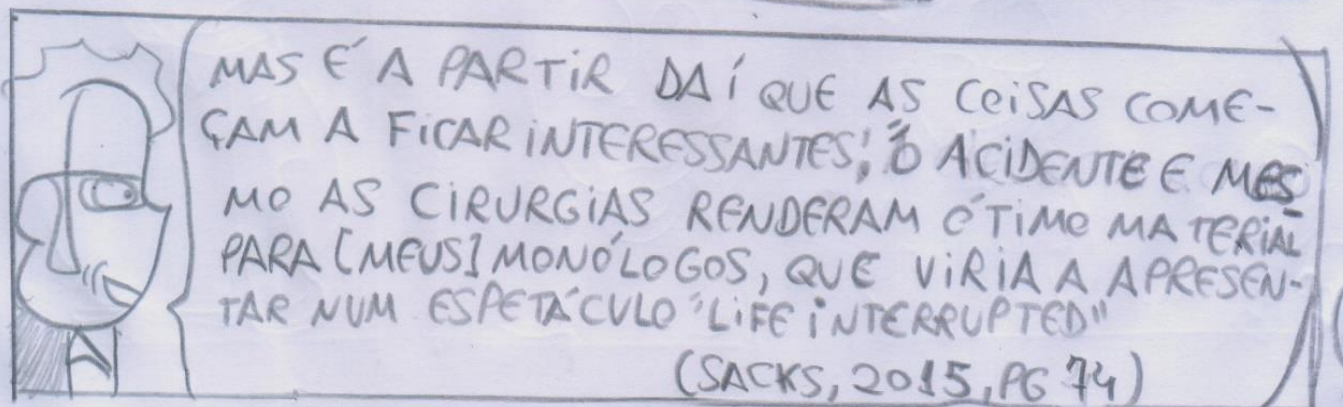 MAS É A PARTIR DAÍ QUE AS COISAS COME-
ÇAM A FICAR INTERESSANTES; O ACIDENTE E MES-
MO AS CIRURGIAS RENDERAM ÓTIMO MATERIAL
PARA [MEUS] MONÓLOGOS, QUE VIRIA A APRESEN-
TAR NUM ESPETÁCULO "LIFE INTERRUPTED"
(SACKS, 2015, PG 74)